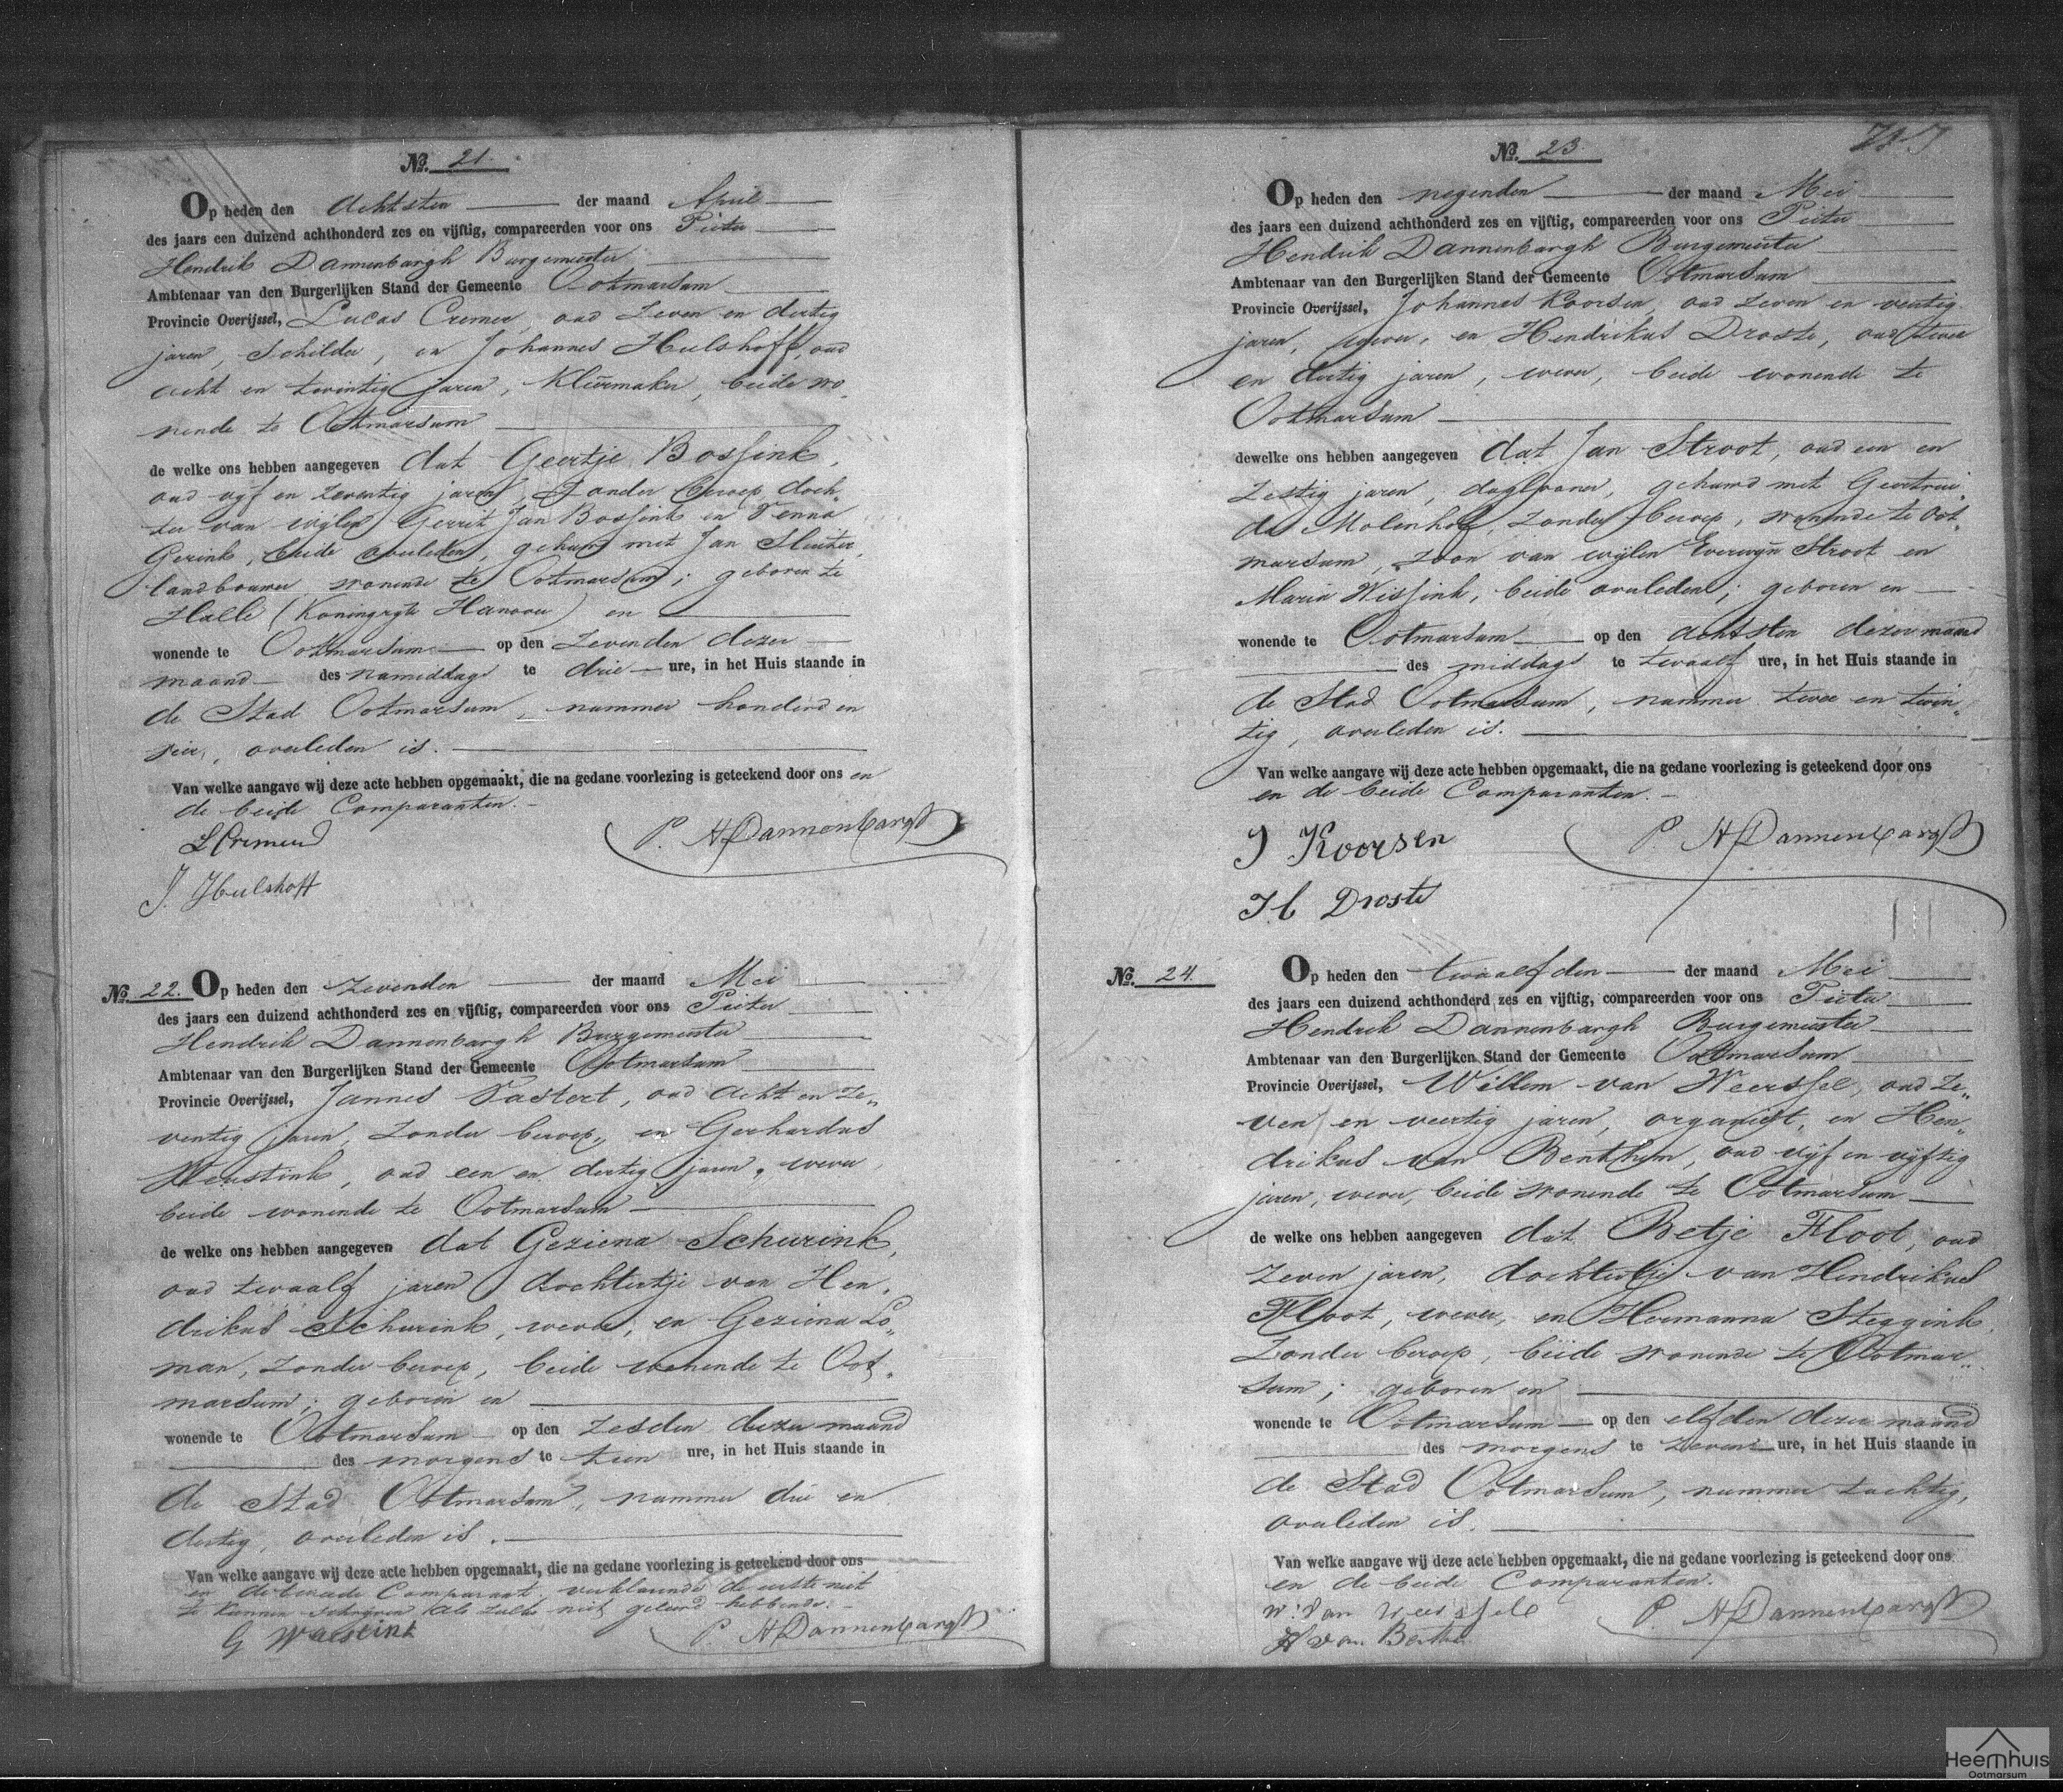 No. 21.
Op heden den achtsten der maand April
des jaars een duizend achthonderd zes en vijftig, compareerden voor ons Pieter
Hendrik Dannenbargh Burgemeester
Ambtenaar van den Burgerlijken Stand der Gemeente Ootmarsum
Provincie Overijssel, Lucas Cremer, oud zeven en dertig
jaren, Schilder, en Johannes Hulshoff, oud
acht en twintig jaren, Kleermaker, beide wo„
nende te Ootmarsum
de welke ons hebben aangegeven dat Geertje Bossink,
oud vijf en zeventig jaren, zonder beroep, doch„
ter van wijlen Gerrit Jan Bossink en Fenna
Gerink, beide overleden, gehuwd met Jan Sluiter,
landbouwer, wonende te Ootmarsum; geboren te
Halle (Koningryk Hanover) en
wonende te Ootmarsum op den zevenden dezer
maand des namiddags te drie ure, in het Huis staande in
de Stad Ootmarsum, nummer honderd en
vier, overleden is.
Van welke aangave wij deze acte hebben opgemaakt, die na gedane voorlezing is geteekend door ons en
de beide Comparanten.
L Cremer
P. H Dannenbargh
J. Hulshoff
No. 22. Op heden den zevenden der maand Mei
des jaars een duizend achthonderd zes en vijftig, compareerden voor ons Pieter
Hendrik Dannenbargh Burgemeester
Ambtenaar van den Burgerlijken Stand der Gemeente Ootmarsum
Provincie Overijssel, Jannes Tastert, oud acht en ze„
ventig jaren, zonder beroep, en Gerhardus
oud een en dertig jaren, wever,
beide wonende te Ootmarsum
de welke ons hebben aangegeven dat Geziena Schurink,
oud twaalf jaren, dochtertje van Hen„
drikus Schurink, wever, en Geziena Lo„
man, zonder beroep, beide wonende te Oot„
marsum; geboren en
wonende te Ootmarsum op den zesden dezer maand
des morgens te tien ure, in het Huis staande in
de Stad Ootmarsum, nummer drie en
dertig, overleden is.
Van welke aangave wij deze acte hebben opgemaakt, die na gedane voorlezing is geteekend door ons
en de tweede Comparant, verklarende de eerste niet
te kunnen schrijven als zulks niet geleerd hebbende.
P. H Dannenbargh
G
No. 23
Op heden den negenden der maand Mei
des jaars een duizend achthonderd zes en vijftig, compareerden voor ons Pieter
Hendrik Dannenbargh Burgemeester
Ambtenaar van den Burgerlijken Stand der Gemeente Ootmarsum
Provincie Overijssel, Johannes Koorsen, oud zeven en veertig
jaren, wever, en Hendrikus Droste, oud twee
en dertig jaren, wever, beide wonende te
Ootmarsum
dewelke ons hebben aangegeven dat Jan Stroot, oud een en
zestig jaren, daglooner, gehuwd met Geertrui„
da Molenhof, zonder beroep, wonende te Oot„
marsum, zoon van wijlen Everwyn Stroot en
Maria Wissink, beide overleden; geboren en
wonende te Ootmarsum op den achtsten dezer maand
des middags te twaalf ure, in het Huis staande in
de Stad Ootmarsum, nummer twee en twin„
tig, overleden is.
Van welke aangave wij deze acte hebben opgemaakt, die na gedane voorlezing is geteekend door ons
en de beide Comparanten.
J Koorsen
P. H Dannenbargh
H Droste
No. 24. Op heden den twaalfden der maand Mei
des jaars een duizend achthonderd zes en vijftig, compareerden voor ons Pieter
Hendrik Dannenbargh Burgemeester
Ambtenaar van den Burgerlijken Stand der Gemeente Ootmarsum
Provincie Overijssel, Willem van Weerssel, oud ze„
ven en veertig jaren, organist, en Hen„
drikus van Benthem, oud vijf en vijftig
jaren, wever, beide wonende te Ootmarsum
de welke ons hebben aangegeven dat Betje Floot, oud
zeven jaren, dochtertje van Hendrikus
Floot, wever, en Hermanna Steggink,
zonder beroep, beide wonende te Ootmar„
sum; geboren en
wonende te Ootmarsum op den elfden dezer maand
des morgens te zeven ure, in het Huis staande in
de Stad Ootmarsum, nummer tachtig,
overleden is.
Van welke aangave wij deze acte hebben opgemaakt, die na gedane voorlezing is geteekend door ons
en de beide Comparanten.
W. Van Weerssel
P. H Dannenbargh
H van
Heemhuis
Ootmarsum